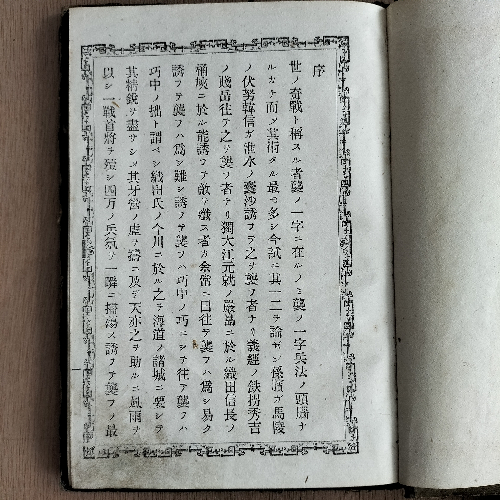 序
世ノ奇戰ト稱スル者襲ノ一字ニ在ルノミ襲ノ一字兵法ノ頭腦ナ
ルカナ而シ其術タル最モ多シ今試ニ其一二ヲ論ゼン孫臏ガ馬陵
ノ伏弩韓信ガ淮水ノ囊沙誘フテ之ヲ襲ノ者ナリ義經ノ鉄拐秀吉
ノ賤岳往テ之ヲ襲ノ者ナリ獨大江元就ノ嚴島ニ於ル織田信長ノ
桶峽ニ於ル能誘フテ敵ヲ殲ス者カ余常ニ曰往テ襲フハ爲シ易ク
誘フテ襲フハ爲シ難シ誘ノテ襲フハ巧中ノ巧ニシテ往テ襲フハ
巧中ノ拙ト謂ベシ織田氏ノ今川ニ於ル之ヲ海道ノ諸城ニ要シテ
其精銳ヲ盡サシメ其牙營ノ虛ヲ襲ニ及テ天亦之ヲ助ルニ風雨ヲ
以シ一戰首將ヲ殪シ四万ノ兵氛ヲ一瞬ニ掃蕩ス誘フテ襲フノ最